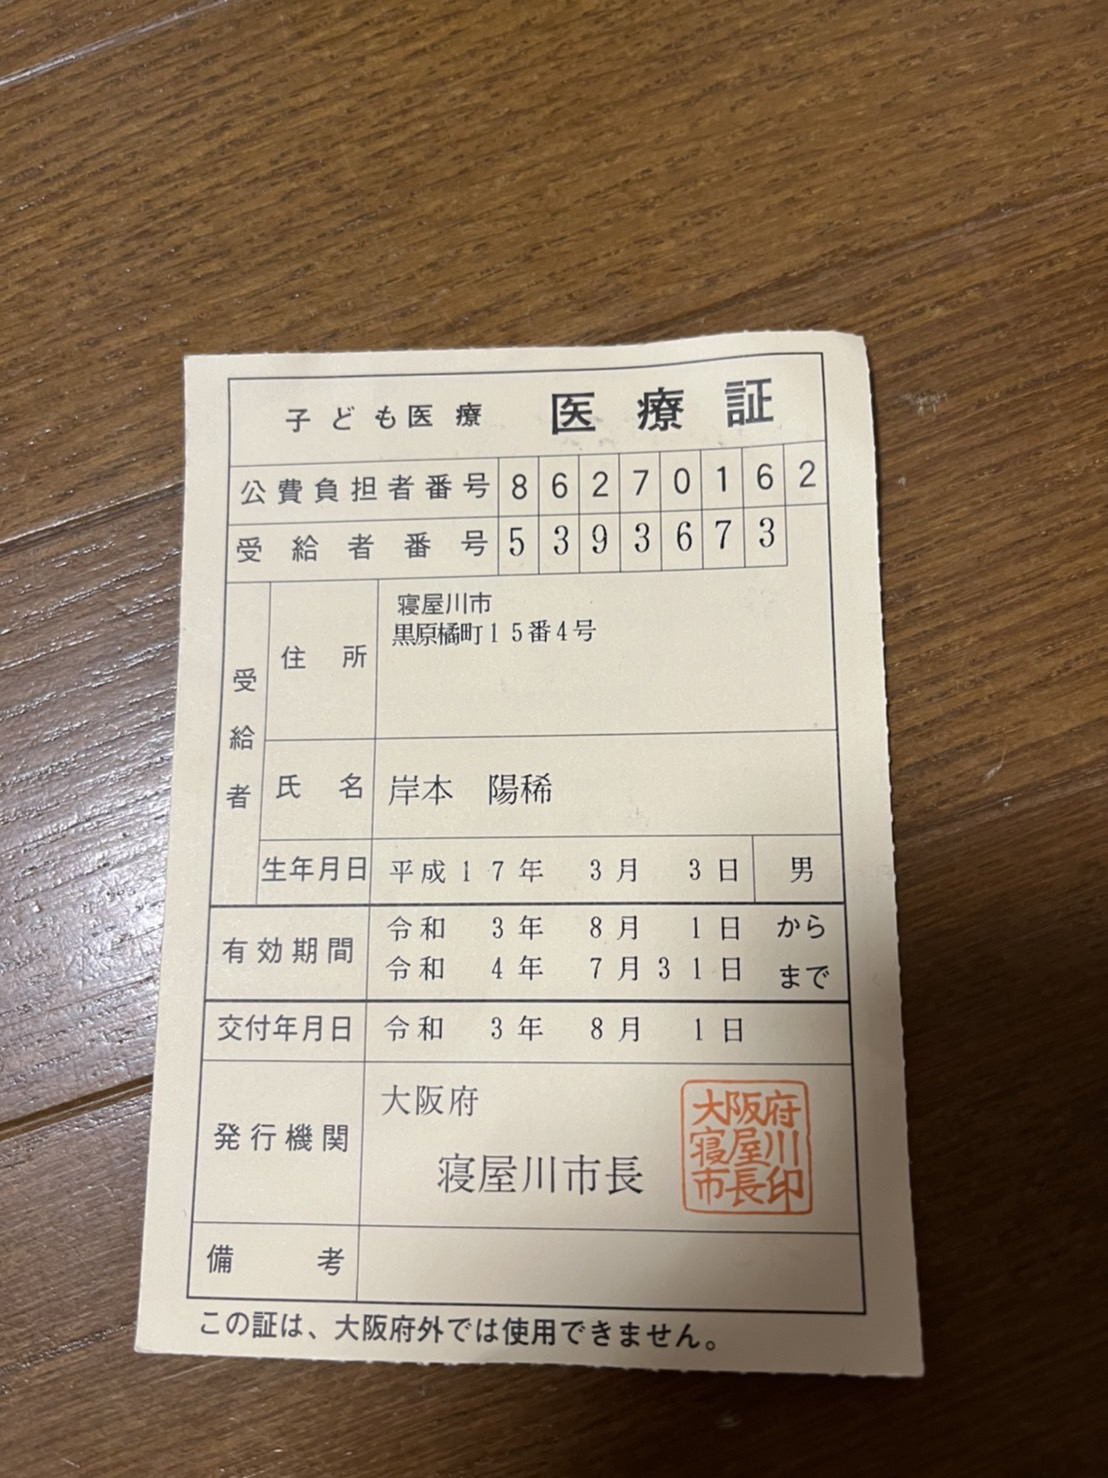 子ども医療 医療証
公費負担者番号 86270162
受給者番号 5393673
受給者
住所 寝屋川市
黒原橘町15番4号
氏名 岸本 陽稀
生年月日 平成17年 3月 3日 男
有効期間 令和 3年 8月 1日 から
令和 4年 7月31日 まで
交付年月日 令和 3年 8月 1日
発行機関 大阪府
寝屋川市長
大阪府
寝屋川
市長印
備考
この証は、大阪府外では使用できません。